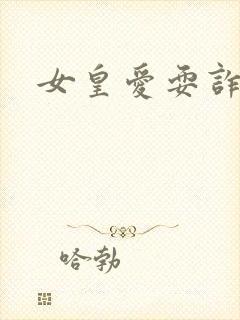 女皇愛耍詐
哈勃